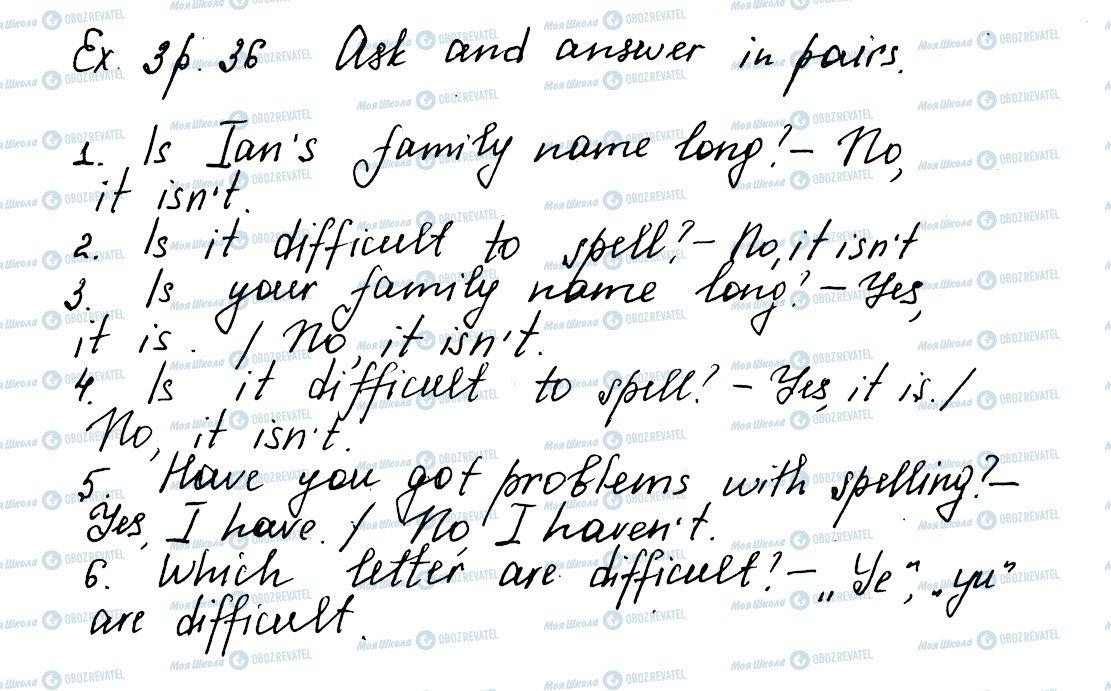 Ex. 3 p. 36 Ask and answer in pairs.
1. Is Ian's family name long? – No,
it isn't.
2. Is it difficult to spell? – No, it isn't
3. Is your family name long? – Yes,
it is. / No, it isn't.
4. Is it difficult to spell? – Yes, it is. /
No, it isn't.
5. Have you got problems with spelling? –
Yes, I have. / No, I haven't.
6. Which letter are difficult? – „Ye", „yu"
are difficult.